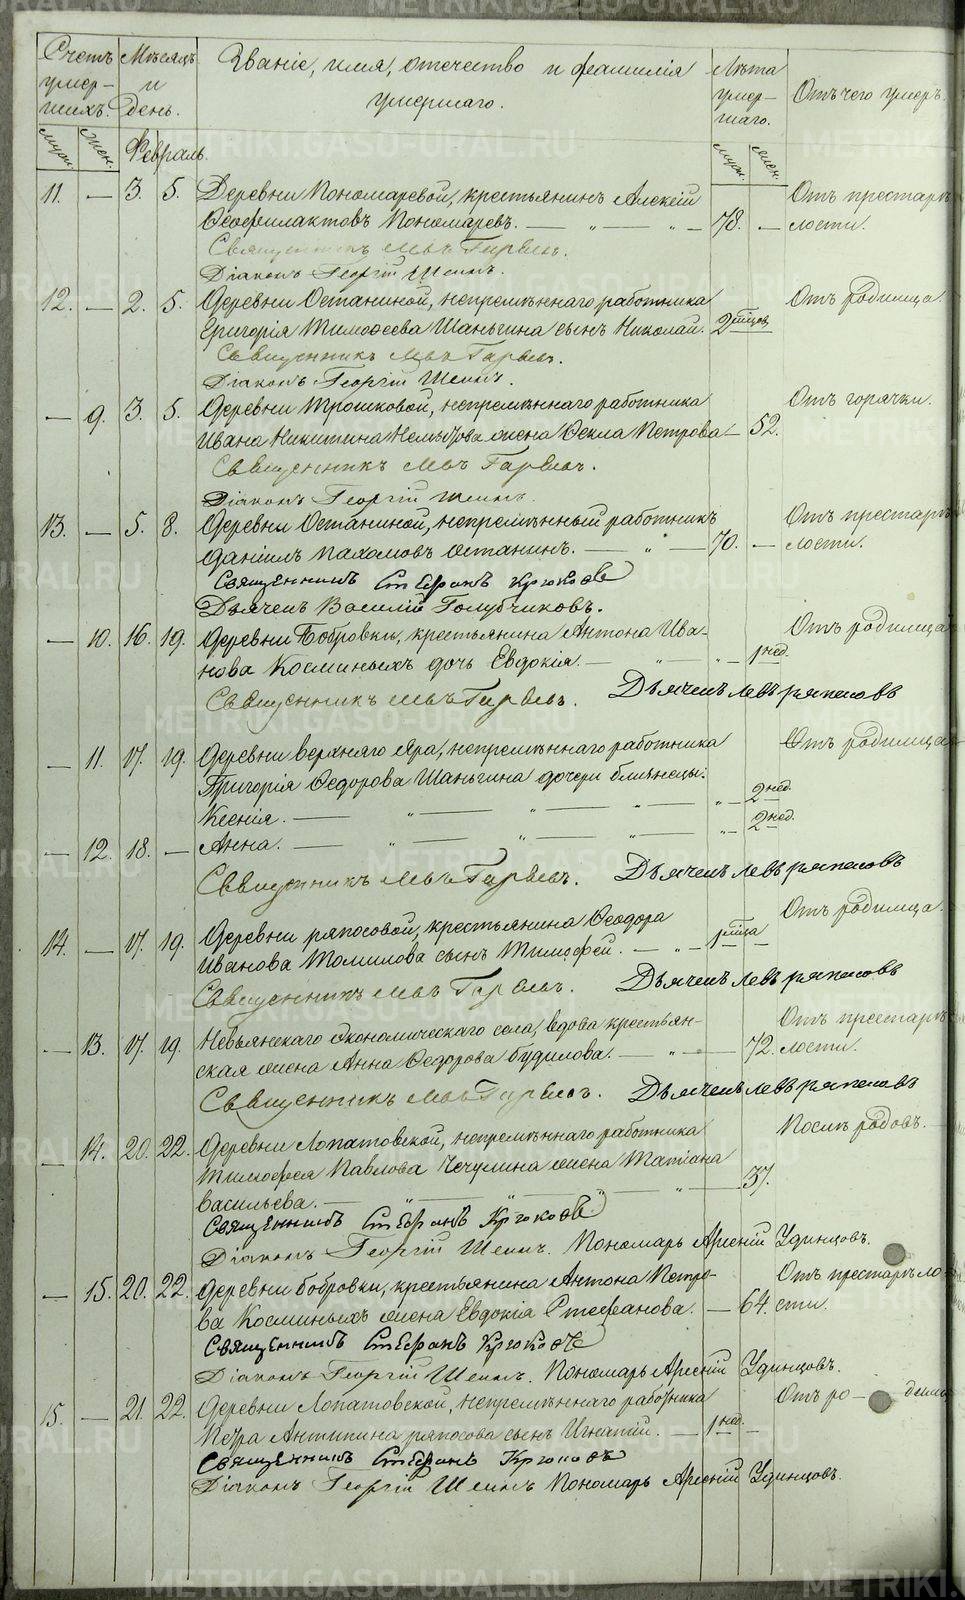 METRIKI.GASO-URAL.RU
Счетъ умер-шихъ.
Мѣсяцъ и день.
Званіе, имя, отчество и фамилія умершаго.
Лѣта умер-шаго.
Отъ чего умеръ.
муж. жен.
Февраль.
муж. жен.
11. — 3. 5. Деревни Пономаревой, крестьянинъ Алексій Отъ престарѣ-
Ѳеофилактовъ Пономаревъ. — „ — „ — 78. — лости.
Священникъ Левъ Гаревъ.
Діаконъ Георгій Шеинъ.
12. — 2. 5. Деревни Останиной, непремѣннаго работника Отъ родимца.
Григорія Тимоѳеева Шаньгина сынъ Николай. 2 мѣсяц.
Священникъ Левъ
Діаконъ Георгій Шеинъ.
— 9. 3. 5. Деревни Трошковой, непремѣннаго работника Отъ горячки.
Ивана Никитина жена Ѳекла Петрова — 52.
Священникъ Левъ
Діаконъ Георгій Шеинъ.
13. — 5. 8. Деревни Останиной, непремѣнный работникъ Отъ престарѣ-
Даніилъ Пахомовъ Останинъ. — „ — 70. — лости.
Священникъ Стефанъ Крюковъ
Дьячекъ Василій Голубчиковъ.
— 10. 16. 19. Деревни Бобровки, крестьянина Антона Ива- Отъ родимца
нова Косминыхъ дочь Евдокія. — „ — „ — 1 нед.
Священникъ Левъ Дьячекъ Левъ Ряпосовъ
— 11. 17. 19. Деревни Верхняго Яра, непремѣннаго работника Отъ родимца
Григорія Ѳедорова Шаньгина дочери близнецы:
Ксенія. — „ — „ — „ — „ — 2 нед.
— 12. 18. — Анна. — „ — „ — „ — „ — 2 нед.
Священникъ Левъ Дьячекъ Левъ Ряпосовъ
14. — 17. 19. Деревни Ряпосовой, крестьянина Ѳеодора Отъ родимца.
Иванова Томилова сынъ Тимофей. — „ — 1 мѣсяца
Священникъ Левъ Дьячекъ Левъ Ряпосовъ
— 13. 17. 19. Невьянскаго Экономическаго села, вдова крестьян- Отъ престарѣ-
ская жена Анна Ѳедорова Будилова. — „ — 72. лости.
Священникъ Левъ Дьячекъ Левъ Ряпосовъ
— 14. 20. 22. Деревни Лопатовской, непремѣннаго работника Послѣ родовъ. —
Тимофея Павлова Чечулина жена Татіана
Васильева. — „ — „ — „ — „ — 37.
Священникъ Стефанъ Крюковъ
Діаконъ Георгій Шеинъ. Пономарь Арсеній Удинцовъ.
— 15. 20. 22. Деревни Бобровки, крестьянина Антона Петро- Отъ престарѣло-
ва Косминыхъ жена Евдокія Стефанова. — 64. сти.
Священникъ Стефанъ Крюковъ
Діаконъ Георгій Шеинъ. Пономарь Арсеній Удинцовъ.
15. — 21. 22. Деревни Лопатовской, непремѣннаго работника Отъ ро-
Петра Антипина Ряпосова сынъ Игнатій. — 1 нед. —
Священникъ Стефанъ Крюковъ
Діаконъ Георгій Шеинъ Пономарь Арсеній Удинцовъ.